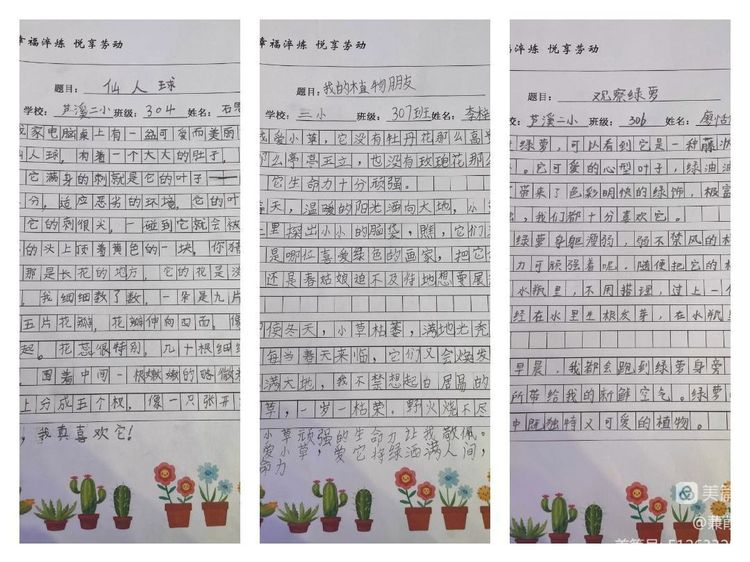 幸福淬炼 悦享劳动
题目：仙人球
学校：芦溪二小 班级：304 姓名：石
我家电脑桌上有一盆可爱而美丽
仙人球，有着一个大大的肚子，
它满身的刺就是它的叶子
分，适应恶劣的环境，它的叶
它的刺很尖，一碰到它就会
的头上顶着黄色的一块，你猜
那是长花的地方，它的花是淡
我细细数了数，一朵是九片
五片花瓣，花瓣伸向四面，像
起。花蕊很特别，九十根细细
围着中间一根嫩嫩的略微
上分成五个杈，像一只张开
，我真喜欢它！
幸福淬炼 悦享劳动
题目：我的植物朋友
学校：三小 班级：307班 姓名：李
爱小草，它没有牡丹花那么高
么亭亭玉立，也没有玫瑰花那么
它生命力十分顽强。
天，温暖的阳光洒向大地，小
里探出小小的脑袋，瞧，它们
是哪位喜爱绿色的画家，把它
还是春姑娘迫不及待地想要展
使冬天，小草枯萎，满地光秃
每当春天来临，它们又会焕发
满大地，我不禁想起白居易的
草，一岁一枯荣。野火烧不尽
小草顽强的生命力让我敬佩。
爱小草，爱它将绿洒满人间，
命力
福淬炼 悦享劳动
题目：观察绿萝
学校：芦溪二小 班级：306 姓名：廖
绿萝，可以看到它是一种藤
。它可爱的心型叶子，绿油油
带来了色彩明快的绿饰，极富
，我们都十分喜欢它。
绿萝身躯瘦弱，弱不禁风的
力可顽强着呢，随便把它的
水瓶里，不用搭理，过上一
经在水里生根发芽，在水瓶
早晨，我都会跑到绿萝身旁
所带给我的新鲜空气。绿萝
中既独特又可爱的植物。
美篇
@蒹
美篇号